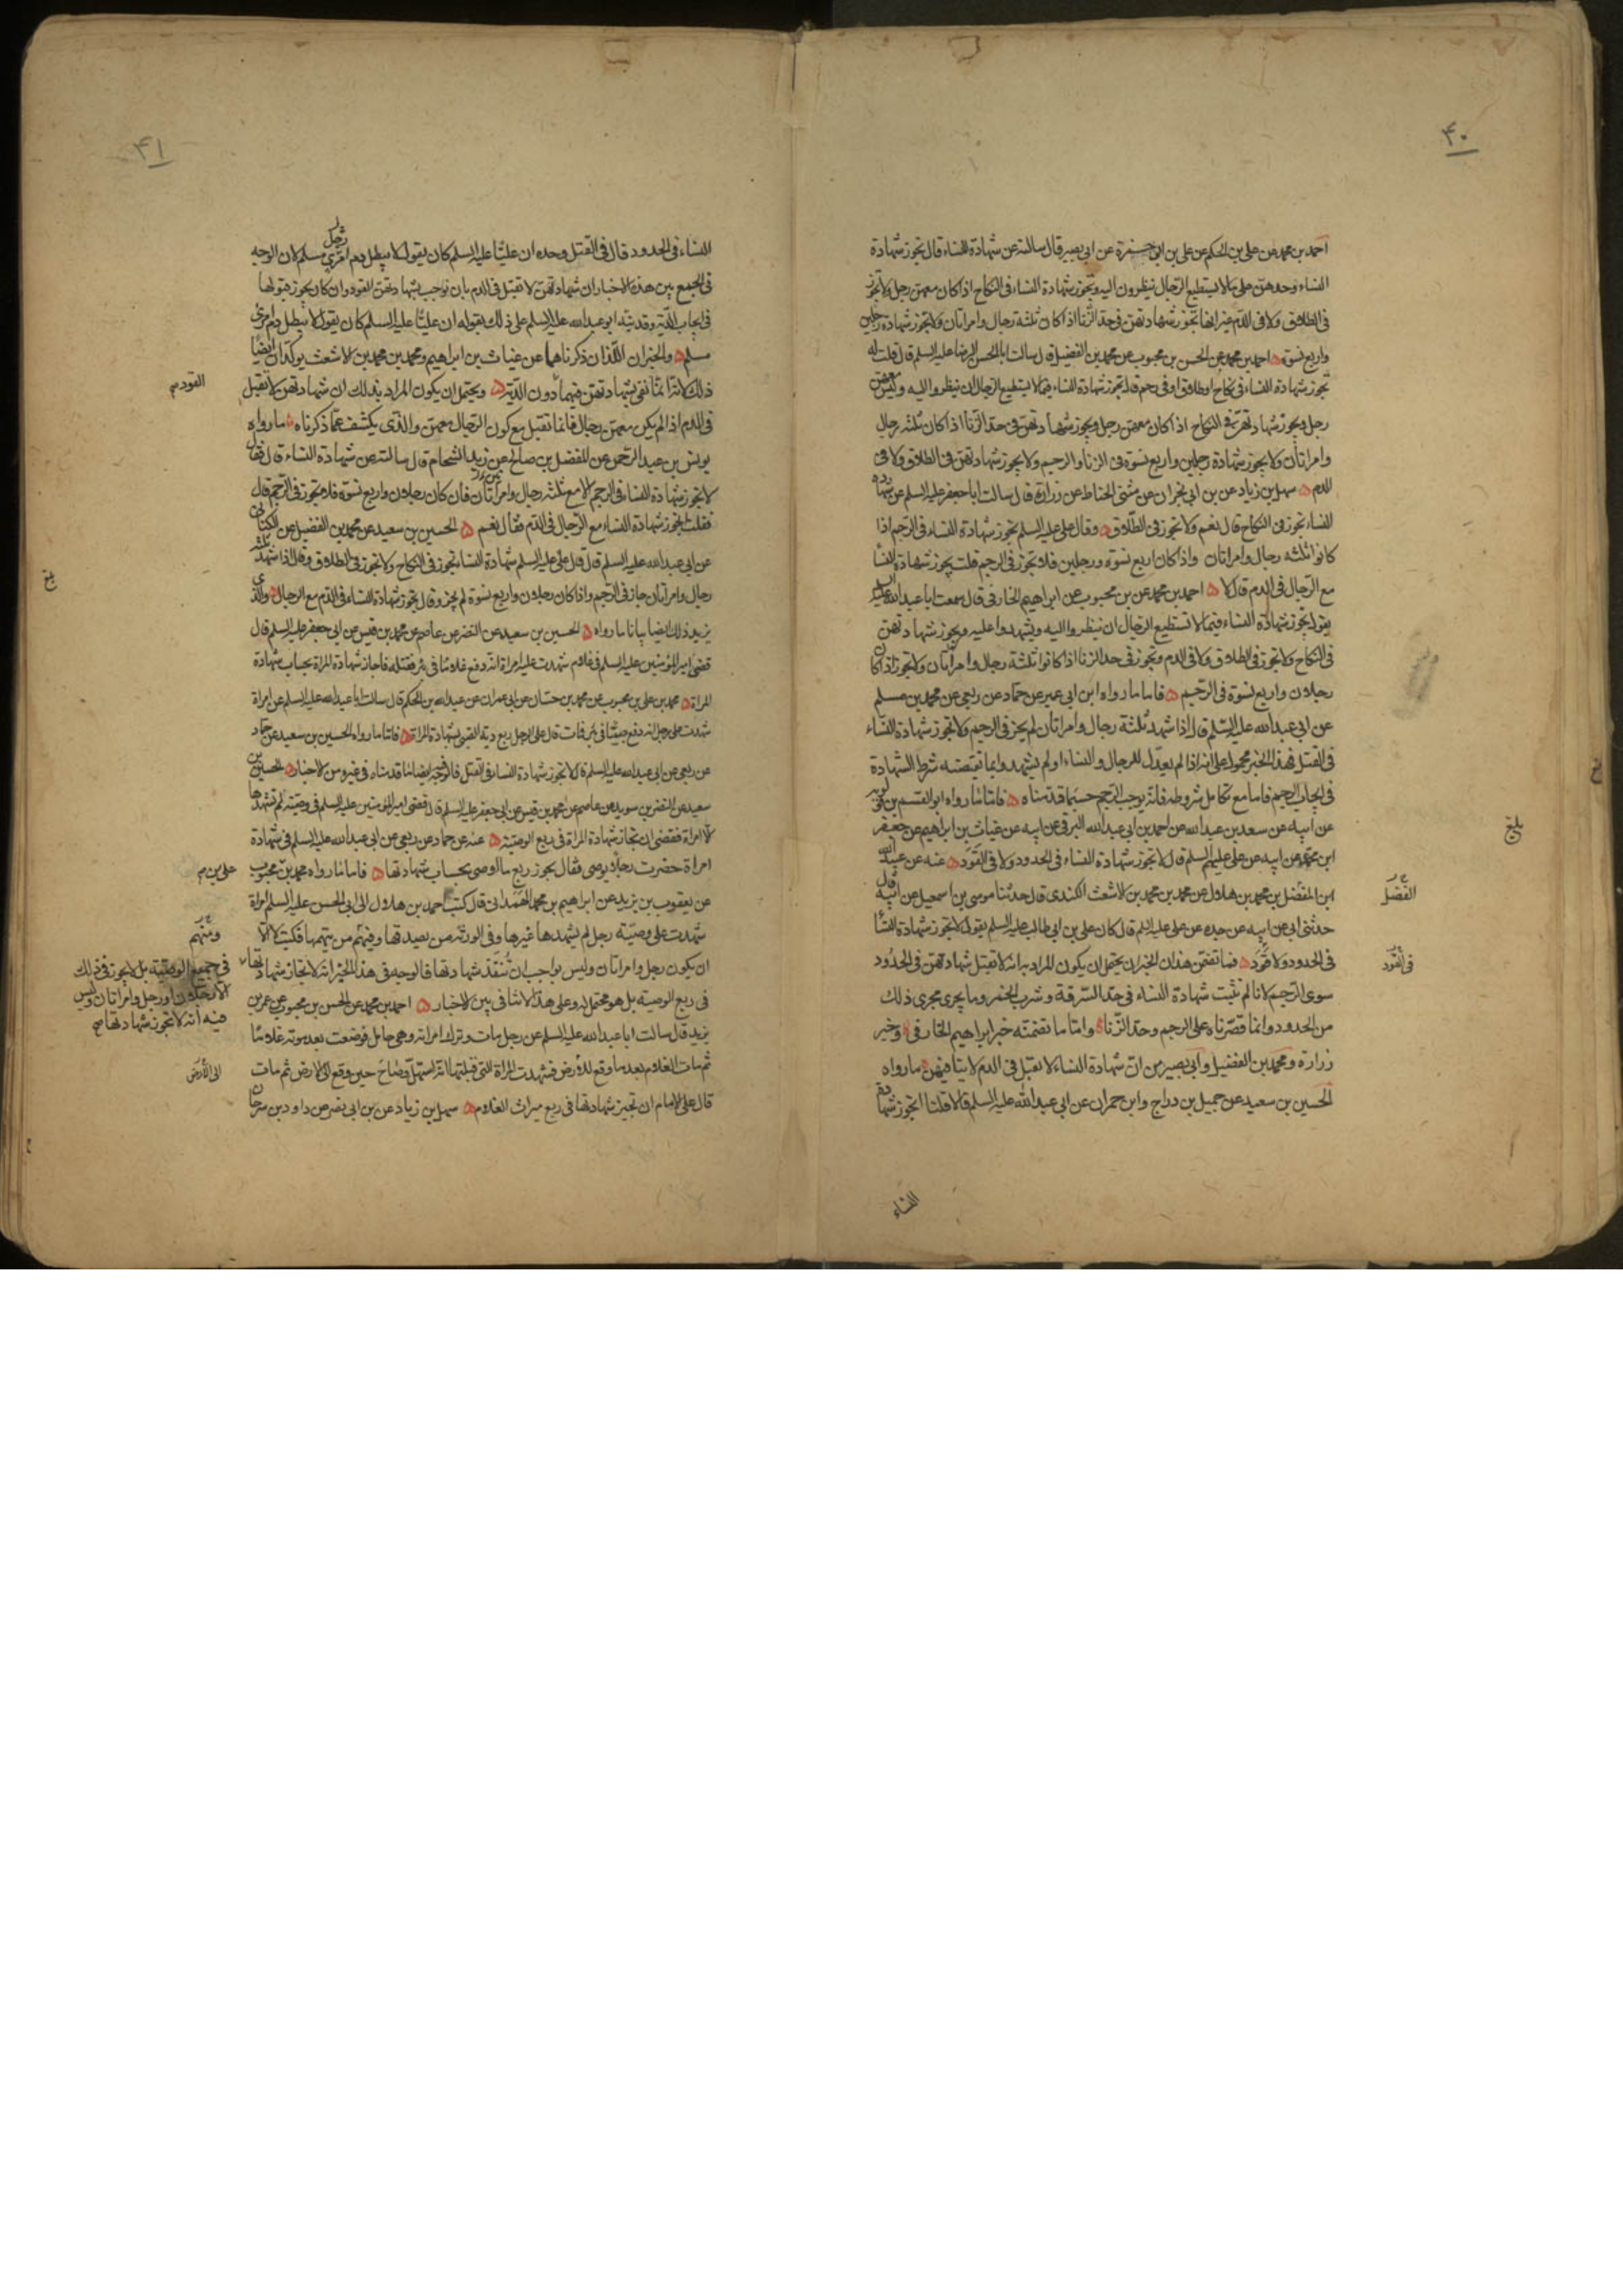 ۴۰
احمد بن محمد عن علي بن الحكم عن علي بن ابي حمزة عن ابي بصير قال سالته عن شهادة النساء قال تجوز شهادة
النساء وحدهن على ما لا يستطيع الرجال ينظرون اليه وتجوز شهادة النساء في النكاح اذا كان معهن رجل ولا تجوز
في الطلاق ولا في الدم غير انها تجوز شهادتهن في حد الزنا اذا كان ثلثة رجال وامراتان ولا تجوز شهادة رجلين
واربع نسوة احمد بن محمد عن الحسن بن محبوب عن محمد بن الفضيل قال سالت ابا الحسن الرضا عليه السلم قال قلت له
تجوز شهادة النساء في نكاح او طلاق او في رجم قال تجوز شهادة النساء فيما لا يستطيع الرجال ان ينظروا اليه وليس معهن
رجل ويجوز شهادتهن في النكاح اذا كان معهن رجل ويجوز شهادتهن في حد الزنا اذا كان ثلثه رجال
وامراتان ولا يجوز شهادة رجلين واربع نسوة في الزنا والرجم ولا يجوز شهادتهن في الطلاق ولا في
الدم سهل بن زياد عن بن ابي نجران عن مثنى الحناط عن زرارة قال سالت ابا جعفر عليه السلم عن شهادة
النساء تجوز في النكاح قال نعم ولا تجوز في الطلاق وقال علي عليه السلم تجوز شهادة النساء في الرجم اذا
كانوا ثلثه رجال وامراتان واذا كان اربع نسوة ورجلين فلا تجوز في الرجم قلت يجوز شهادة النسا
مع الرجال في الدم قال لا احمد بن محمد عن بن محبوب عن ابراهيم الخارفي قال سمعت ابا عبد الله عليه السلم
يقول تجوز شهادة النساء فيما لا تستطيع الرجال ان ينظروا اليه ويشهدوا عليه ويجوز شهادتهن
في النكاح ولا تجوز في الطلاق ولا في الدم وتجوز في حد الزنا اذا كانوا ثلثة رجال وامراتان ولا تجوز اذا كان
رجلان واربع نسوة في الرجم فاما ما رواه ابن ابي عمير عن حماد عن ربعي عن محمد بن مسلم
عن ابي عبد الله عليه السلم قال اذا شهد ثلثة رجال وامراتان لم يجز في الرجم ولا تجوز شهادة النساء
في القتل فهذا الخبر محمول على انه اذا لم يعدل الرجال والنساء او لم يشهدوا بما تقتضيه شرط الشهادة
في ايجاب الرجم فاما مع تكامل شروطه فانه يوجب الرجم حسبما قدمناه فاما ما رواه ابو القسم بن قولويه
عن ابيه عن سعد بن عبد الله عن احمد بن ابي عبد الله البرقي عن ابيه عن غياث بن ابراهيم عن جعفر
ابن محمد عن ابيه عن علي عليهم السلم قال لا تجوز شهادة النساء في الحدود ولا في القود عنه عن عبيد الله
ابن المفضل بن محمد بن هلال عن محمد بن محمد بن الاشعث الكندي قال حدثنا موسى بن اسمعيل عن ابيه قال
حدثني ابي عن ابيه عن جده عن علي عليه السلم قال كان علي بن ابي طالب عليه السلم يقول لا تجوز شهادة النسا
في الحدود ولا قود فما تضمن هذان الخبران يحتمل ان يكون المراد به انه لا تقبل شهادتهن في الحدود
سوى الرجم لانا لم نثبت شهادة النساء في حد السرقة وشرب الخمر وما يجري مجرى ذلك
من الحدود وانما قصرناه على الرجم وحد الزنا واما ما تضمنه خبر ابراهيم الخارفي وخبر
زرارة ومحمد بن الفضيل وابي بصير من ان شهادة النساء لا تقبل في الدم لا ينافيهن ما رواه
الحسين بن سعيد عن جميل بن دراج وابن حمران عن ابي عبد الله عليه السلم قالا قلنا اتجوز شهادة
النساء
بلغ
الفضل
في القود
۴۱
النساء في الحدود قال في القتل وحده ان عليا عليه السلم كان يقول لا يبطل دم امرئ مسلم لان الوجه
رجل
في الجمع بين هذه الاخبار ان شهادتهن لا تقبل في الدم بان نوجب بشهادتهن القود وان كان يجوز قبولها
في ايجاب الدية وقد نبه ابو عبد الله عليه السلم على ذلك بقوله ان عليا عليه السلم كان يقول لا يبطل دم امرئ
مسلم والخبران اللذان ذكرناهما عن غياث بن ابراهيم ومحمد بن محمد بن الاشعث يوكدان ايضا
ذلك لانه انما نفى شهادتهن فيهما دون الدية ويحتمل ان يكون المراد بذلك ان شهادتهن لا تقبل
القود صح
في الدم اذا لم يكن معهن رجال فانما تقبل مع كون الرجال معهن والذي يكشف عما ذكرناه ما رواه
يونس بن عبد الرحمن عن المفضل بن صالح عن زيد الشحام قال سالته عن شهادة النساء قال فقال
لا تجوز شهادة النساء في الرجم الا مع ثلثه رجال وامراتان فان كان رجلان واربع نسوة فلا تجوز في الرجم قال
فقلت اتجوز شهادة النساء مع الرجال في الدم فقال نعم الحسين بن سعيد عن محمد بن الفضيل عن الكناني
عن ابي عبد الله عليه السلم قال قال علي عليه السلم شهادة النساء تجوز في النكاح ولا تجوز في الطلاق وقال اذا شهد ثلثه
رجال وامراتان جاز في الرجم واذا كان رجلان واربع نسوة لم يجز وقال تجوز شهادة النساء في الدم مع الرجال والذي
يزيد ذلك ايضا بيانا ما رواه الحسين بن سعيد عن النضر عن عاصم عن محمد بن قيس عن ابي جعفر عليه السلم قال
قضى امير المؤمنين عليه السلم في غلام شهدت عليه امراة انه دفع غلاما في بئر فقتله فاجاز شهادة المراة بحساب شهادة
المراة محمد بن علي بن محبوب عن محمد بن حسان عن ابي عمران عن عبد الله بن الحكم قال سالت ابا عبد الله عليه السلم عن امراة
شهدت على رجل انه دفع صبيا في بئر فمات قال على الرجل ربع دية الصبي بشهادة المراة فاما ما رواه الحسين بن سعيد عن حماد
عن ربعي عن ابي عبد الله عليه السلم قال لا تجوز شهادة النساء في القتل فالوجه ايضا ما قدمناه في غيره من الاخبار الحسين بن
سعيد عن النضر بن سويد عن عاصم عن محمد بن قيس عن ابي جعفر عليه السلم قال قضى امير المؤمنين عليه السلم في وصية لم تشهدها
الا امراة فقضى ان تجاز شهادة المراة في ربع الوصية عنه عن حماد عن ربعي عن ابي عبد الله عليه السلم في شهادة
امراة حضرت رجلا يوصي فقال يجوز ربع ما اوصى بحساب شهادتها فاما ما رواه محمد بن محبوب
علي بن صح
عن يعقوب بن يزيد عن ابراهيم بن محمد الهمداني قال كتب احمد بن هلال الى ابي الحسن عليه السلم امراة
شهدت على وصية رجل لم يشهدها غيرها وفي الورثه من يصدقها وفيهم من يتهمها فكتب لا الا
ومنهم
ان يكون رجل وامراتان وليس بواجب ان تنفذ شهادتها فالوجه في هذا الخبر انه لا تجاز شهادتها
في جميع الوصية بل لا يجوز في ذلك
الا رجلان او رجل وامراتان وليس
فيه انه لا تجوز شهادتها صح
في ربع الوصية بل هو محتمل له وعلى هذا لا تنافي بين الاخبار احمد بن محمد عن الحسن بن محبوب عن عمر بن
يزيد قال سالت ابا عبد الله عليه السلم عن رجل مات وترك امراته وهي حامل فوضعت بعد موته غلاما
ثم مات الغلام بعد ما وقع للارض فشهدت المراة التي قبلتها انه استهل وصاح حين وقع الى الارض ثم مات
الى الارض
قال على الامام ان تجيز شهادتها في ربع ميراث الغلام سهل بن زياد عن بن ابي نصر عن داود بن سرحان
بلغ